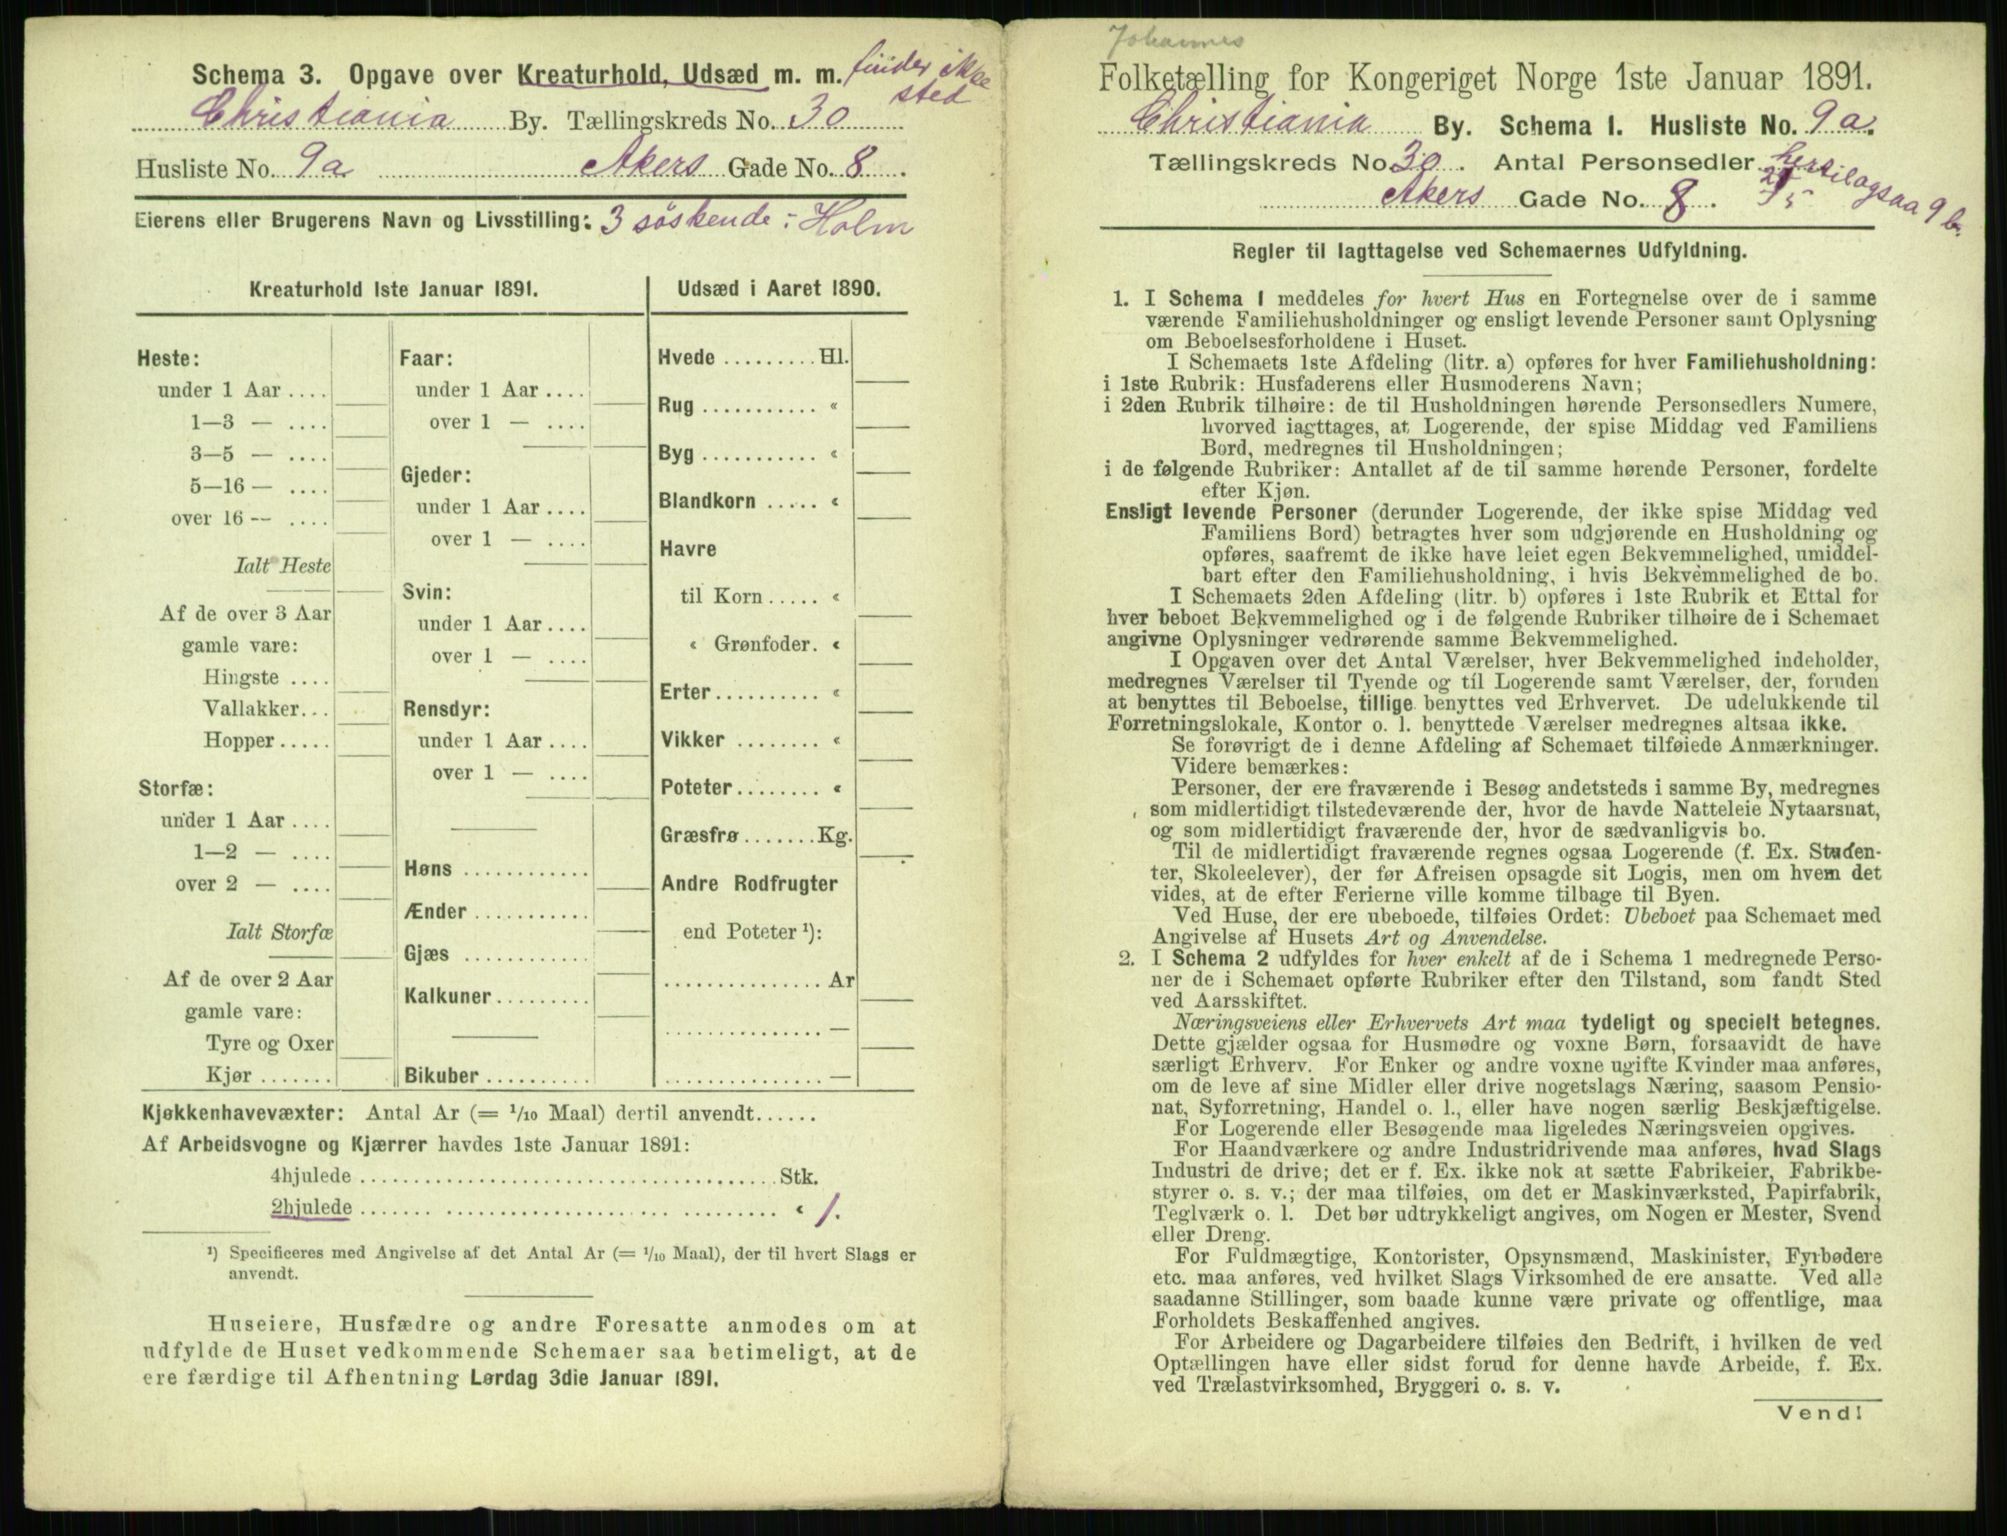 Schema 3. Opgave over Kreaturhold, Udsæd m. m. finder ikke
sted
Christiania By. Tællingskreds No. 30
Husliste No. 9a Akers Gade No. 8.
Eierens eller Brugerens Navn og Livsstilling: 3 søskende: Holm
Kreaturhold 1ste Januar 1891.
Heste:
under 1 Aar ....
1—3 — ....
3—5 — ....
5—16 — ....
over 16 — ....
Ialt Heste
Af de over 3 Aar
gamle vare:
Hingste ....
Vallakker...
Hopper .....
Storfæ:
under 1 Aar ....
1—2 — ....
over 2 — ....
Ialt Storfæ
Af de over 2 Aar
gamle vare:
Tyre og Oxer
Kjør .......
Faar:
under 1 Aar ....
over 1 — ....
Gjeder:
under 1 Aar ....
over 1 — ....
Svin:
under 1 Aar ....
over 1 — ....
Rensdyr:
under 1 Aar ....
over 1 — ....
Høns ............
Ænder ...........
Gjæs ............
Kalkuner .........
Bikuber ..........
Udsæd i Aaret 1890.
Hvede ......... Hl.
Rug ........... «
Byg ........... «
Blandkorn ..... «
Havre
til Korn ..... «
« Grønfoder. «
Erter .......... «
Vikker ........ «
Poteter ........ «
Græsfrø ....... Kg.
Andre Rodfrugter
end Poteter ¹):
............... Ar
............... —
............... —
Kjøkkenhavevæxter: Antal Ar (= 1/10 Maal) dertil anvendt......
Af Arbeidsvogne og Kjærrer havdes 1ste Januar 1891:
4hjulede ....................................... Stk.
2hjulede ....................................... « 1.
¹) Specificeres med Angivelse af det Antal Ar (= 1/10 Maal), der til hvert Slags er
anvendt.
Huseiere, Husfædre og andre Foresatte anmodes om at
udfylde de Huset vedkommende Schemaer saa betimeligt, at de
ere færdige til Afhentning Lørdag 3die Januar 1891.
Johannes
Folketælling for Kongeriget Norge 1ste Januar 1891.
Christiania By. Schema 1. Husliste No. 9a.
Tællingskreds No. 30. Antal Personsedler
Akers Gade No. 8. hertil ogsaa 9b.
Regler til Iagttagelse ved Schemaernes Udfyldning.
1. I Schema 1 meddeles for hvert Hus en Fortegnelse over de i samme
værende Familiehusholdninger og ensligt levende Personer samt Oplysning
om Beboelsesforholdene i Huset.
I Schemaets 1ste Afdeling (litr. a) opføres for hver Familiehusholdning:
i 1ste Rubrik: Husfaderens eller Husmoderens Navn;
i 2den Rubrik tilhøire: de til Husholdningen hørende Personsedlers Numere,
hvorved iagttages, at Logerende, der spise Middag ved Familiens
Bord, medregnes til Husholdningen;
i de følgende Rubriker: Antallet af de til samme hørende Personer, fordelte
efter Kjøn.
Ensligt levende Personer (derunder Logerende, der ikke spise Middag ved
Familiens Bord) betragtes hver som udgjørende en Husholdning og
opføres, saafremt de ikke have leiet egen Bekvemmelighed, umiddel-
bart efter den Familiehusholdning, i hvis Bekvemmelighed de bo.
I Schemaets 2den Afdeling (litr. b) opføres i 1ste Rubrik et Ettal for
hver beboet Bekvemmelighed og i de følgende Rubriker tilhøire de i Schemaet
angivne Oplysninger vedrørende samme Bekvemmelighed.
I Opgaven over det Antal Værelser, hver Bekvemmelighed indeholder,
medregnes Værelser til Tyende og til Logerende samt Værelser, der, foruden
at benyttes til Beboelse, tillige benyttes ved Erhvervet. De udelukkende til
Forretningslokale, Kontor o. l. benyttede Værelser medregnes altsaa ikke.
Se forøvrigt de i denne Afdeling af Schemaet tilføiede Anmærkninger.
Videre bemærkes:
Personer, der ere fraværende i Besøg andetsteds i samme By, medregnes
som midlertidigt tilstedeværende der, hvor de havde Natteleie Nytaarsnat,
og som midlertidigt fraværende der, hvor de sædvanligvis bo.
Til de midlertidigt fraværende regnes ogsaa Logerende (f. Ex. Studen-
ter, Skoleelever), der før Afreisen opsagde sit Logis, men om hvem det
vides, at de efter Ferierne ville komme tilbage til Byen.
Ved Huse, der ere ubeboede, tilføies Ordet: Ubeboet paa Schemaet med
Angivelse af Husets Art og Anvendelse.
2. I Schema 2 udfyldes for hver enkelt af de i Schema 1 medregnede Perso-
ner de i Schemaet opførte Rubriker efter den Tilstand, som fandt Sted
ved Aarsskiftet.
Næringsveiens eller Erhvervets Art maa tydeligt og specielt betegnes.
Dette gjælder ogsaa for Husmødre og voxne Børn, forsaavidt de have
særligt Erhverv. For Enker og andre voxne ugifte Kvinder maa anføres,
om de leve af sine Midler eller drive nogetslags Næring, saasom Pensio-
nat, Syforretning, Handel o. l., eller have nogen særlig Beskjæftigelse.
For Logerende eller Besøgende maa ligeledes Næringsveien opgives.
For Haandværkere og andre Industridrivende maa anføres, hvad Slags
Industri de drive; det er f. Ex. ikke nok at sætte Fabrikeier, Fabrikbe-
styrer o. s. v.; der maa tilføies, om det er Maskinværksted, Papirfabrik,
Teglværk o. l. Det bør udtrykkeligt angives, om Nogen er Mester, Svend
eller Dreng.
For Fuldmægtige, Kontorister, Opsynsmænd, Maskinister, Fyrbødere
etc. maa anføres, ved hvilket Slags Virksomhed de ere ansatte. Ved alle
saadanne Stillinger, som baade kunne være private og offentlige, maa
Forholdets Beskaffenhed angives.
For Arbeidere og Dagarbeidere tilføies den Bedrift, i hvilken de ved
Optællingen have eller sidst forud for denne havde Arbeide, f. Ex.
ved Trælastvirksomhed, Bryggeri o. s. v.
Vend!